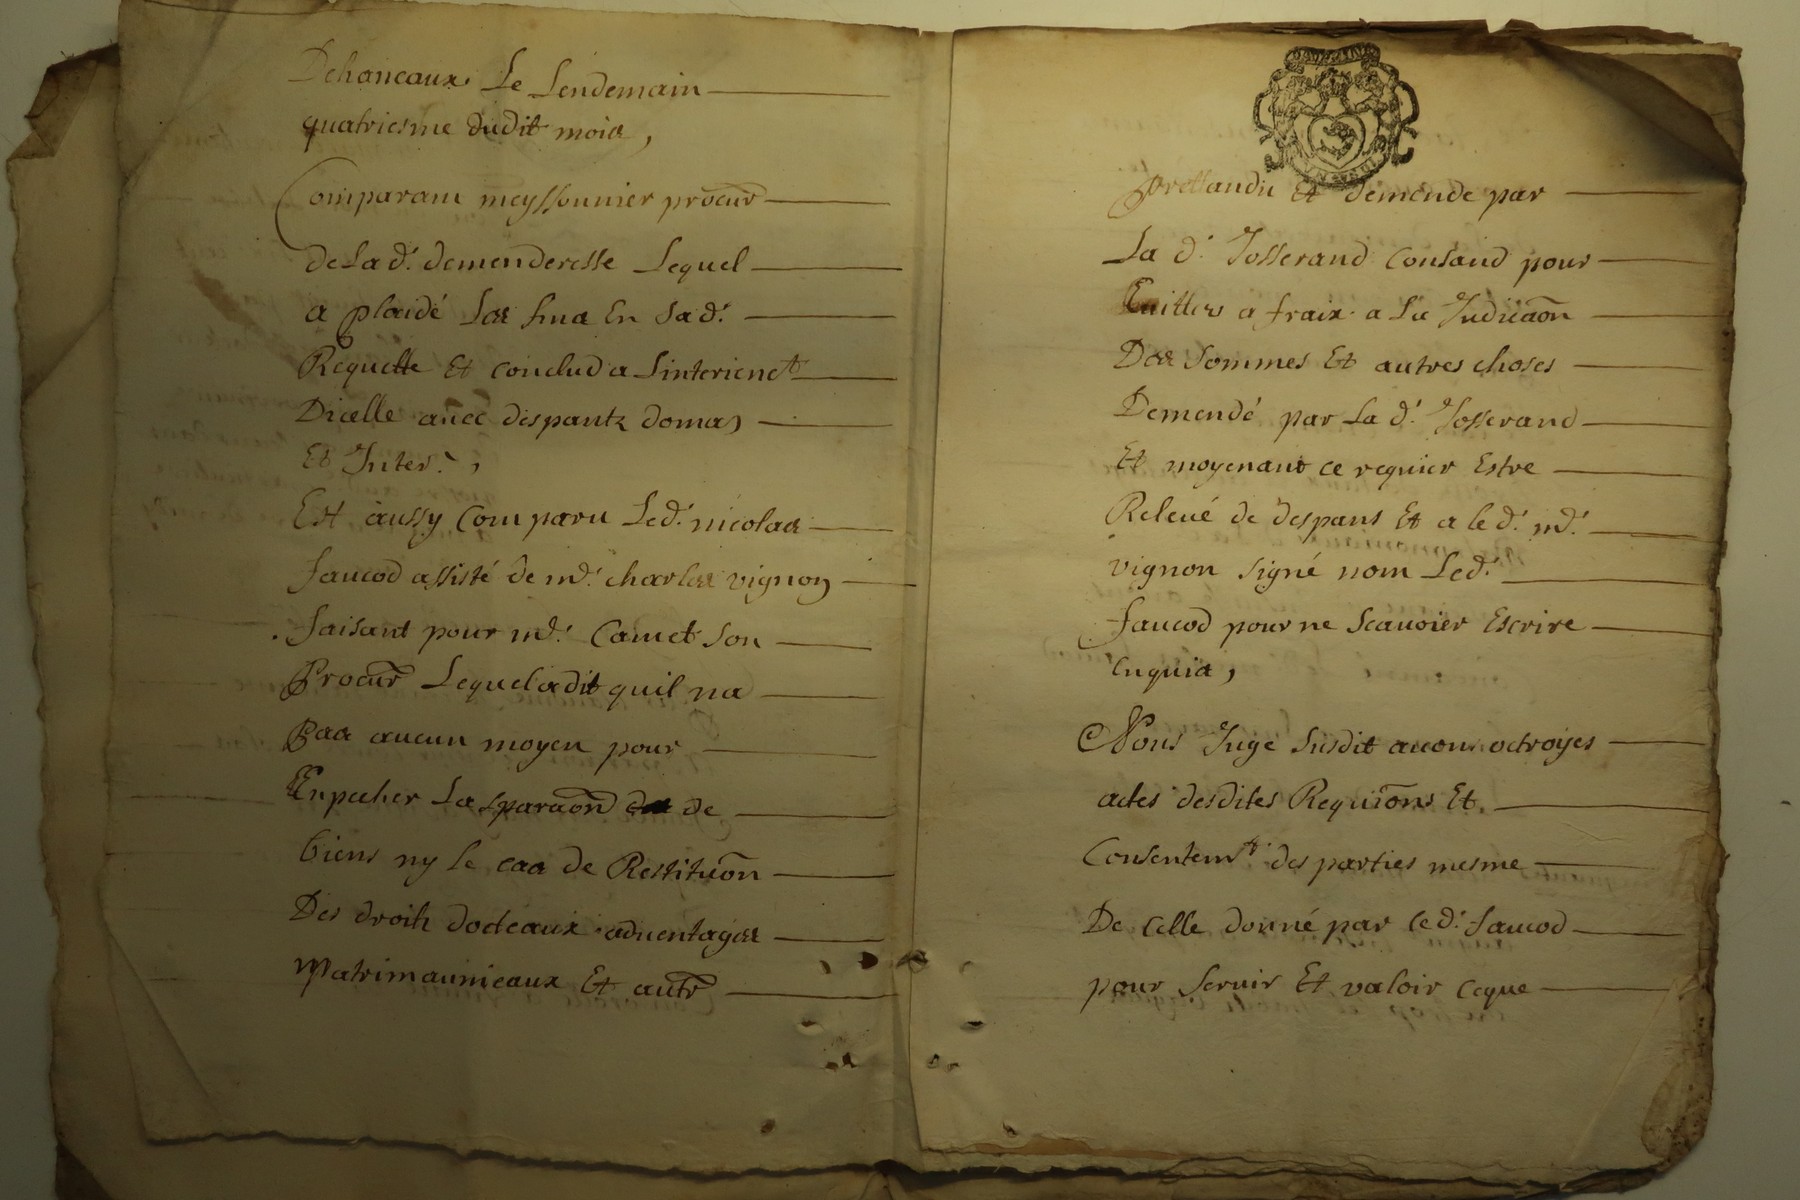 Dehaneaux Le Lendemain
quatriesme dudit mois,
Comparant meyssonnier procur
de La d. demenderesse Lequel
a plaidé Les fins En Sa d.
Requette Et conclud a Linterienet
Dicelle avec despantz domas
Et Inter.,
Est aussy Comparu Le d. nicolas
faucod assisté de md. charles vignon
faisant pour md. Camet son
Procur Lequel a dit quil na
Pas aucun moyen pour
Enpecher La separaon de
biens ny le cas de Restituon
Des droits dodeaux adventages
Matrimaunieaux Et autr
Prettandu Et demende par
La d. Josserand consand pour
a fraix a Lu Judicaon
Des Sommes Et autres choses
Demendé par La d. Josserand
Et moyenant ce requier Estre
Relevé de despans Et a le d. md.
vignon signé nom Le d.
faucod pour ne scavoier Escrire
Enquis,
Nous Juge susdit avons octroyes
actes desdites Requions Et
Consentemt des parties mesme
De Celle donné par le d. faucod
pour servir Et valoir ceque